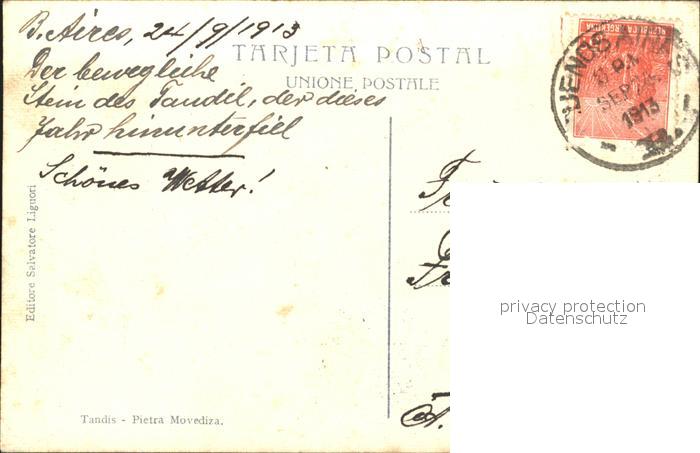 B. Aires, 24/9/1913
TARJETA POSTAL
UNIONE POSTALE
Der bewegliche
Stein des Tandil, der dieses
Jahr hinunterfiel
Schönes Wetter!
REPUBLICA ARGENTINA
BUENOS AIRES
SEP 24
1913
Editore Salvatore Liguori
Tandis - Pietra Movediza.
privacy protection
Datenschutz